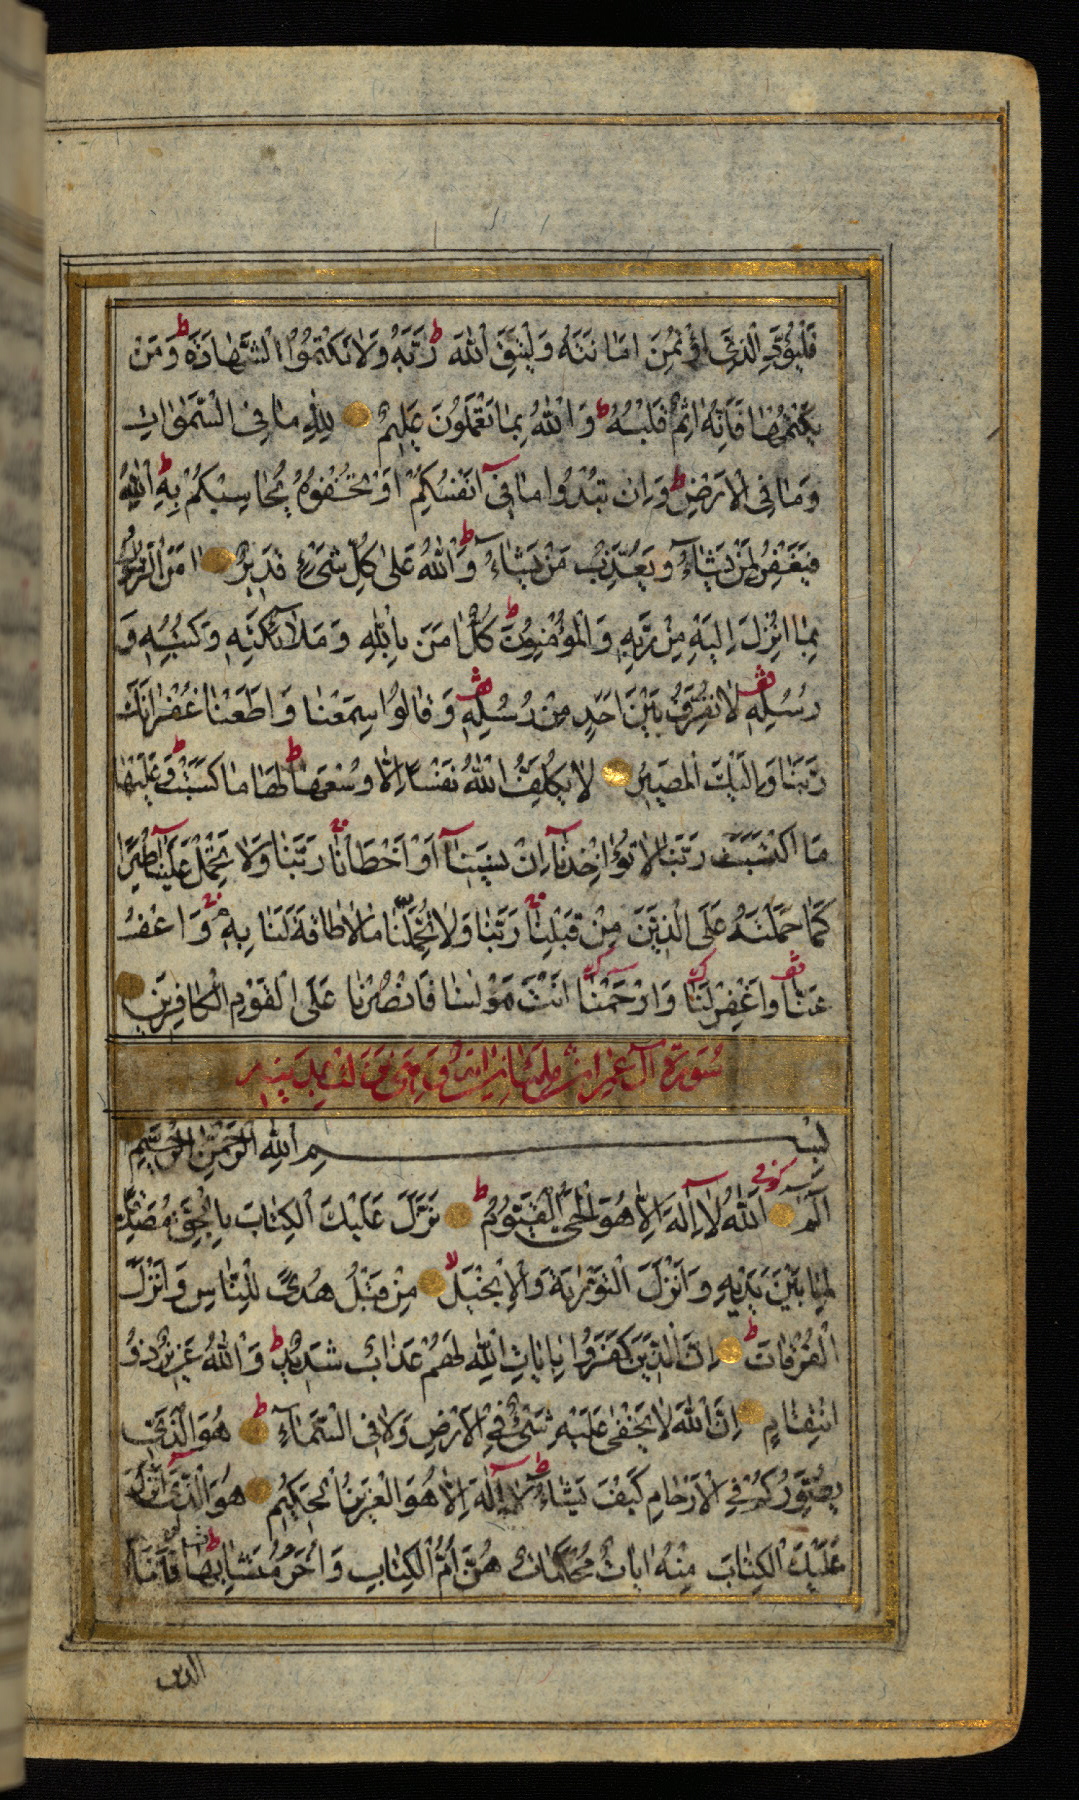 فَلْيُؤَدِّ الَّذِى اؤْتُمِنَ امَانَتَهُ وَلْيَتَّقِ اللّٰهَ رَبَّهُ وَلَا تَكْتُمُوا الشَّهَادَةَ ط وَمَنْ
يَكْتُمْهَا فَاِنَّهُ اثِمٌ قَلْبُهُ ط وَاللّٰهُ بِمَا تَعْمَلُونَ عَلِيمٌ لِلّٰهِ مَا فِى السَّمٰوَاتِ
وَمَا فِى الْاَرْضِ ط وَاِنْ تُبْدُوا مَا فِى اَنْفُسِكُمْ اَوْ تُخْفُوهُ يُحَاسِبْكُمْ بِهِ اللّٰهُ ط
فَيَغْفِرُ لِمَنْ يَشَاءُ وَيُعَذِّبُ مَنْ يَشَاءُ ط وَاللّٰهُ عَلٰى كُلِّ شَىْءٍ قَدِيرٌ امَنَ الرَّسُولُ
بِمَا اُنْزِلَ اِلَيْهِ مِنْ رَبِّهِ وَالْمُؤْمِنُونَ ط كُلٌّ امَنَ بِاللّٰهِ وَمَلَائِكَتِهِ وَكُتُبِهِ وَ
رُسُلِهِ لَا نُفَرِّقُ بَيْنَ اَحَدٍ مِنْ رُسُلِهِ وَقَالُوا سَمِعْنَا وَاَطَعْنَا غُفْرَانَكَ
رَبَّنَا وَاِلَيْكَ الْمَصِيرُ لَا يُكَلِّفُ اللّٰهُ نَفْسًا اِلَّا وُسْعَهَا ط لَهَا مَا كَسَبَتْ وَعَلَيْهَا
مَا اكْتَسَبَتْ رَبَّنَا لَا تُؤَاخِذْنَا اِنْ نَسِينَا اَوْ اَخْطَأْنَا رَبَّنَا وَلَا تَحْمِلْ عَلَيْنَا اِصْرًا
كَمَا حَمَلْتَهُ عَلَى الَّذِينَ مِنْ قَبْلِنَا رَبَّنَا وَلَا تُحَمِّلْنَا مَا لَا طَاقَةَ لَنَا بِهِ وَاعْفُ
عَنَّا وَاغْفِرْ لَنَا وَارْحَمْنَا اَنْتَ مَوْلٰنَا فَانْصُرْنَا عَلَى الْقَوْمِ الْكَافِرِينَ
سُورَةُ آلِ عِمْرَانَ
بِسْمِ اللّٰهِ الرَّحْمٰنِ الرَّحِيمِ
الم كوفى اَللّٰهُ لَا اِلٰهَ اِلَّا هُوَ الْحَىُّ الْقَيُّومُ ط نَزَّلَ عَلَيْكَ الْكِتَابَ بِالْحَقِّ مُصَدِّقًا
لِمَا بَيْنَ يَدَيْهِ وَاَنْزَلَ التَّوْرٰيةَ وَالْاِنْجِيلَ لا مِنْ قَبْلُ هُدًى لِلنَّاسِ وَاَنْزَلَ
الْفُرْقَانَ ط اِنَّ الَّذِينَ كَفَرُوا بِايَاتِ اللّٰهِ لَهُمْ عَذَابٌ شَدِيدٌ ط وَاللّٰهُ عَزِيزٌ ذُو
انْتِقَامٍ اِنَّ اللّٰهَ لَا يَخْفٰى عَلَيْهِ شَىْءٌ فِى الْاَرْضِ وَلَا فِى السَّمَاءِ ط هُوَ الَّذِى
يُصَوِّرُكُمْ فِى الْاَرْحَامِ كَيْفَ يَشَاءُ ط لَا اِلٰهَ اِلَّا هُوَ الْعَزِيزُ الْحَكِيمُ هُوَ الَّذِى اَنْزَلَ
عَلَيْكَ الْكِتَابَ مِنْهُ ايَاتٌ مُحْكَمَاتٌ هُنَّ اُمُّ الْكِتَابِ وَاُخَرُ مُتَشَابِهَاتٌ ط فَاَمَّا
الذين